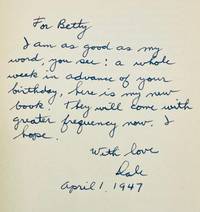 For Betty
I am as good as my
word, you see: a whole
week in advance of your
birthday, here is my new
book. They will come with
greater frequency now. I
hope.
With love
Dale
April 1, 1947